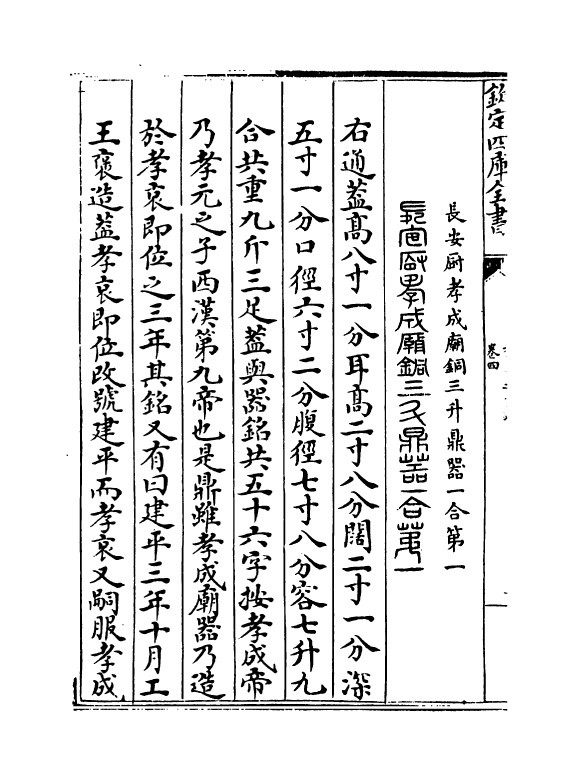 欽定四庫全書
卷四
長安厨孝成廟銅三升鼎器一合第一
長安厨孝成廟銅三升鼎器一合第一
右通蓋髙八寸一分耳髙二寸八分闊二寸一分深
五寸一分口徑六寸二分腹徑七寸八分容七升九
合共重九斤三足蓋與器銘共五十六字按孝成帝
乃孝元之子西漢第九帝也是鼎雖孝成廟器乃造
於孝哀即位之三年其銘又有曰建平三年十月工
王褒造蓋孝哀即位改號建平而孝哀又嗣服孝成